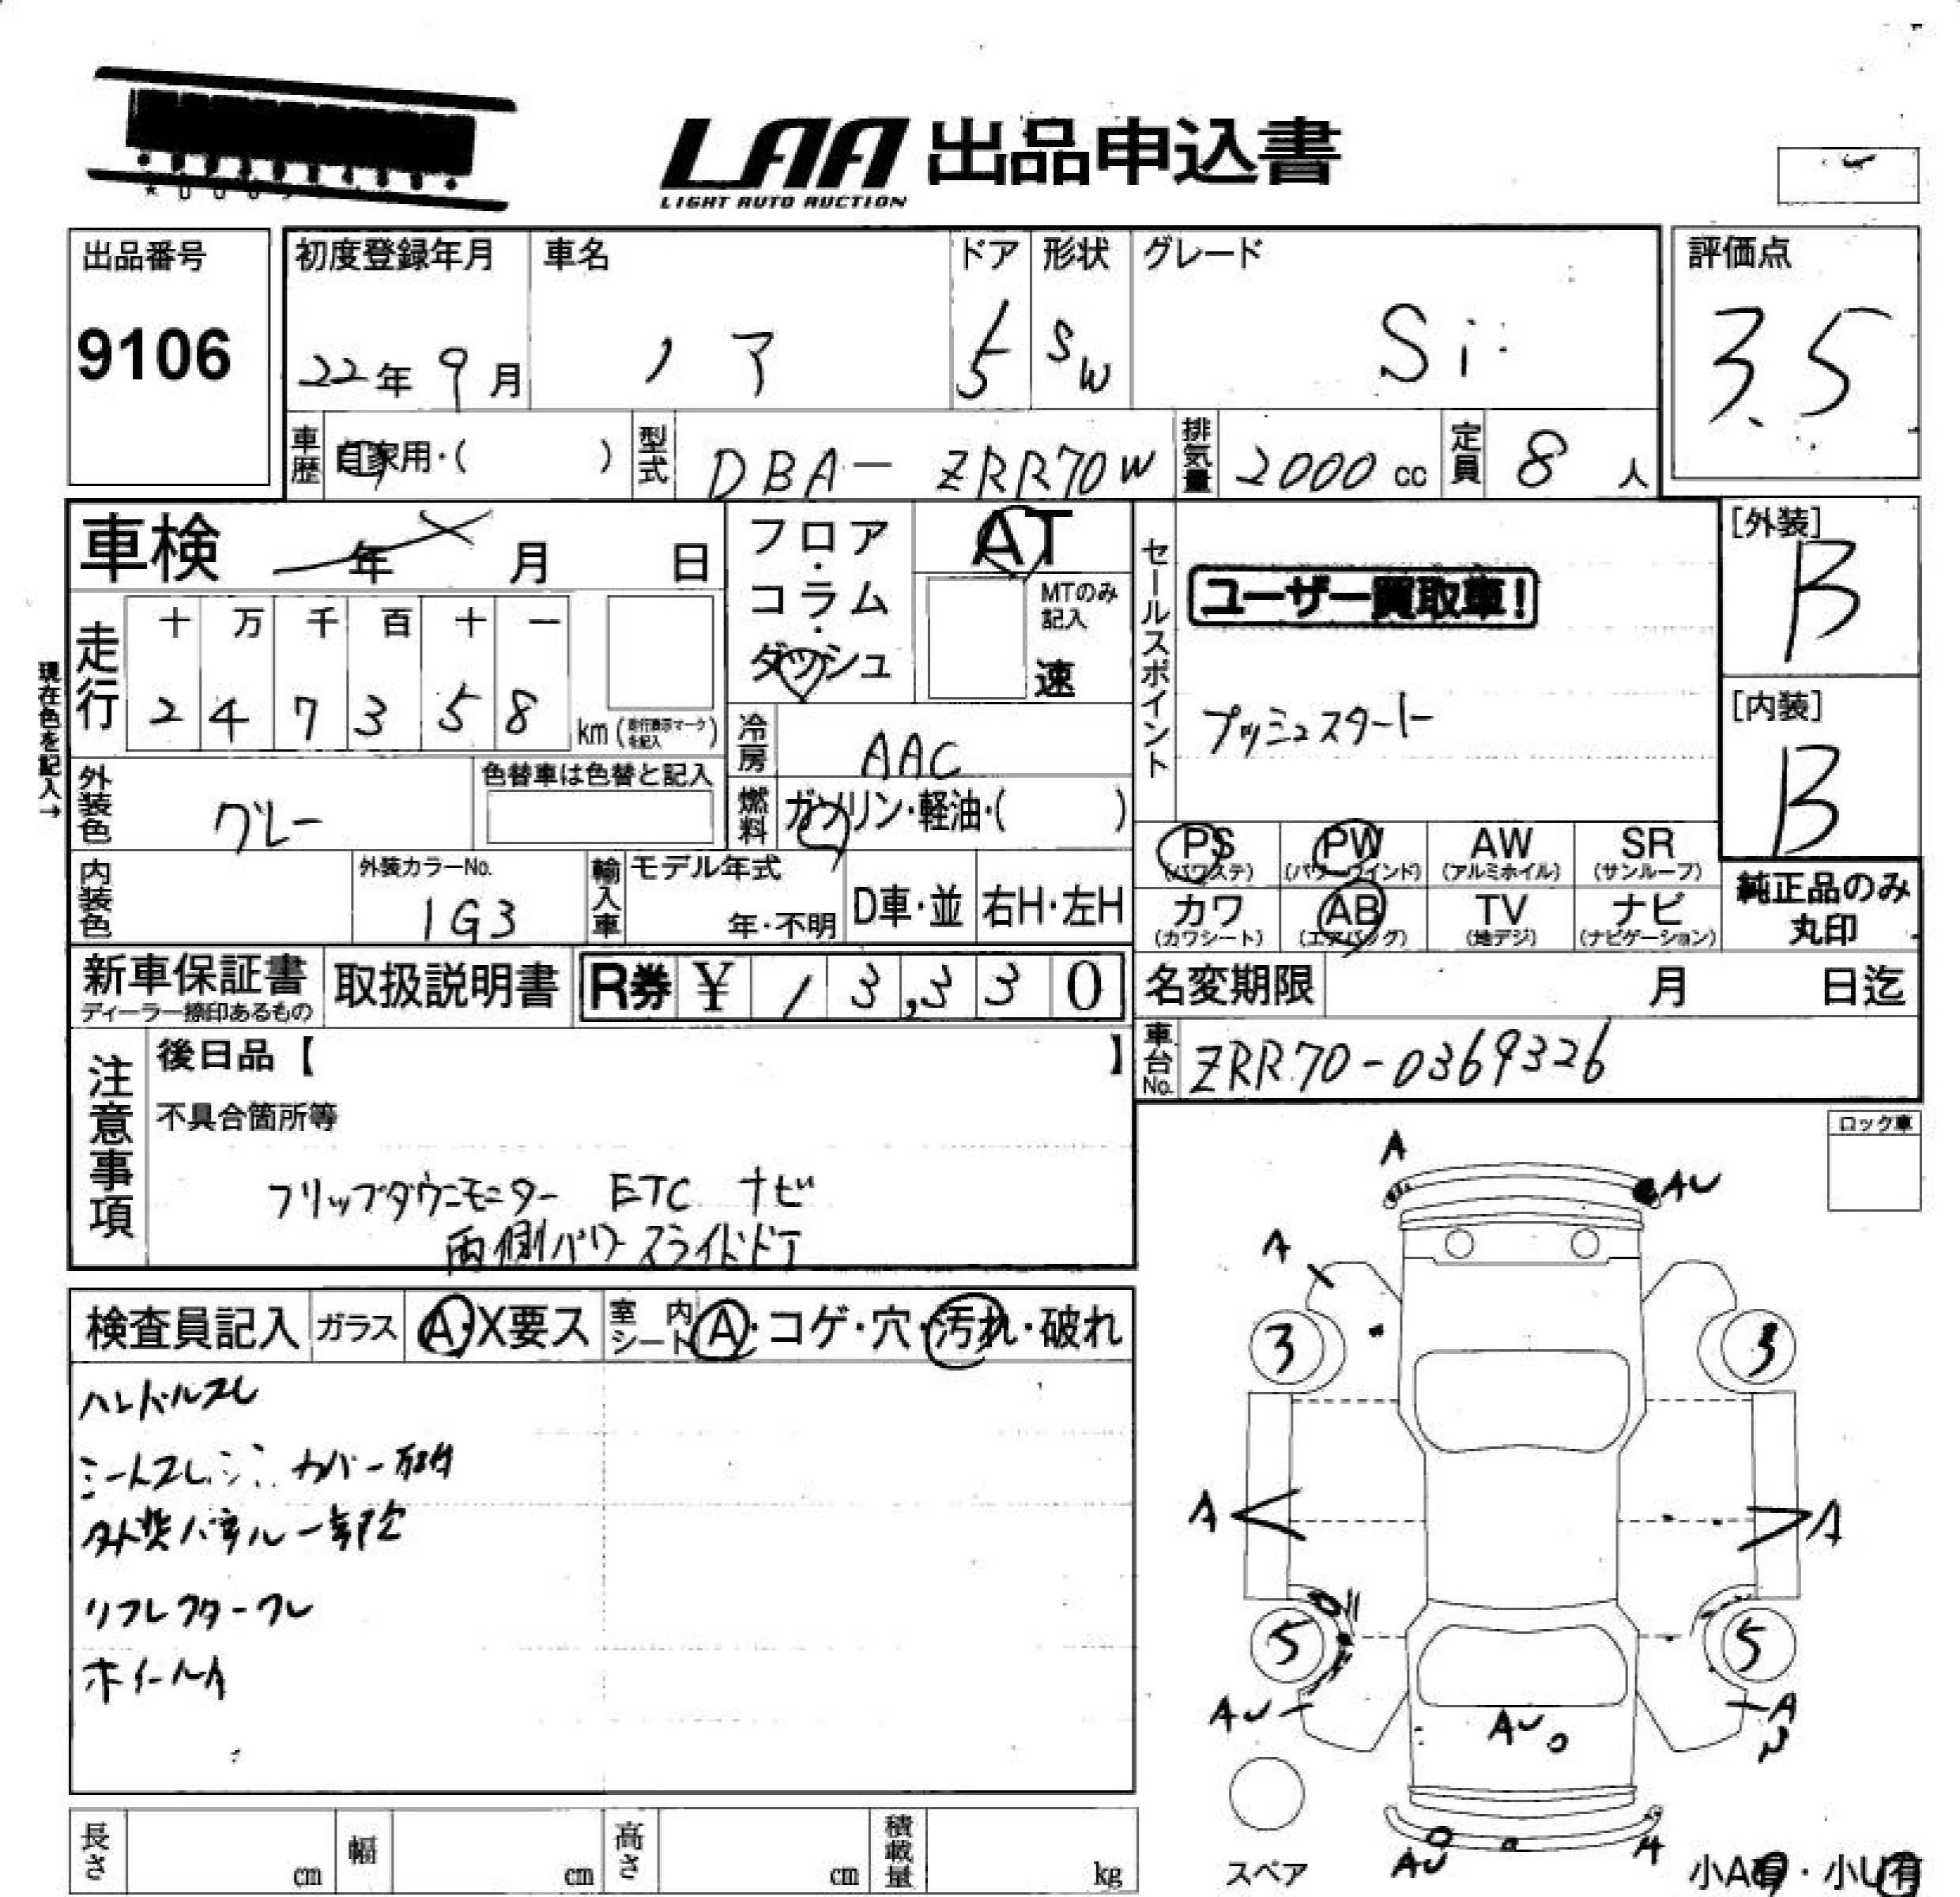 LAA 出品申込書
LIGHT AUTO AUCTION
出品番号
9106
初度登録年月
22年 9月
車名
ノア
ドア
5
形状
SW
グレード
Si
評価点
3.5
車歴 自家用・( )
型式 DBA-ZRR70W
排気量 2000 cc
定員 8 人
車検 年 月 日
フロア・コラム・ダッシュ
AT
MTのみ記入
速
セールスポイント
ユーザー買取車!
プッシュスタート
[外装]
B
[内装]
B
現在色を記入→
走行
十 万 千 百 十 一
2 4 7 3 5 8
km(走行表示マークを記入)
冷房 AAC
燃料 ガソリン・軽油・( )
外装色 グレー
色替車は色替と記入
内装色
外装カラーNo.
1G3
輸入車
モデル年式
年・不明
D車・並
右H・左H
PS (パワステ)
PW (パワーウインド)
AW (アルミホイル)
SR (サンルーフ)
カワ (カワシート)
AB (エアバッグ)
TV (地デジ)
ナビ (ナビゲーション)
純正品のみ丸印
新車保証書
ディーラー捺印あるもの
取扱説明書
R券 ¥ 13,330
名変期限 月 日迄
車台No. ZRR70-0369326
注意事項
後日品【 】
不具合箇所等
フリップダウンモニター ETC ナビ
両側パワースライドドア
ロック車
検査員記入
ガラス A・X要ス
室内シート A・コゲ・穴・汚れ・破れ
ハンドルスレ
シートスレ シミ カバー破れ
外装パネル一部
リフレクターワレ
ホイールA
A
AU
A
3
3
A
A
5
5
AU
AU
A
AU
A
スペア
小A有・小U有
長さ cm
幅 cm
高さ cm
積載量 kg